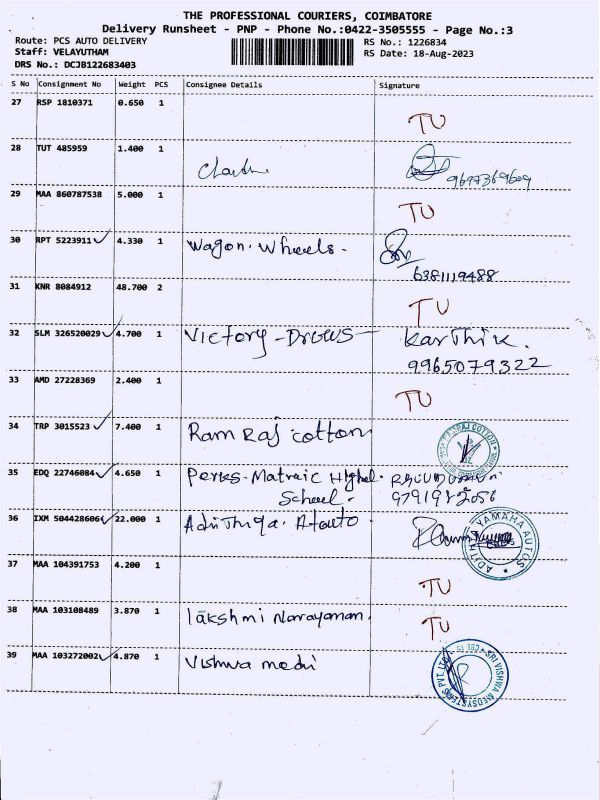 THE PROFESSIONAL COURIERS, COIMBATORE
Delivery Runsheet - PNP - Phone No.:0422-3505555 - Page No.:3
Route: PCS AUTO DELIVERY RS No.: 1226834
Staff: VELAYUTHAM RS Date: 18-Aug-2023
DRS No.: DCJB122683403
S No Consignment No Weight PCS Consignee Details Signature
27 RSP 1810371 0.650 1 TU
28 TUT 485959 1.400 1
9697369609
29 MAA 860787538 5.000 1 TU
30 RPT 5223911 4.330 1 Wagon. Wheels.
6381119488
31 KNR 8084912 48.700 2 TU
32 SLM 326520029 4.700 1 Victory - Drugs Karthik.
9965079322
33 AMD 27228369 2.400 1 TU
34 TRP 3015523 7.400 1 Ram Raj cotton RAMRAJ COTTON
35 EDQ 22746084 4.650 1 Perks. Matric Higher.
School.
36 IXM 504428606 22.000 1 ADITHYA YAMAHA AUTOS
37 MAA 104391753 4.200 1 TU
38 MAA 103108489 3.870 1 lakshmi Narayanan. TU
39 MAA 103272002 4.870 1 Vishwa SRI VISHWA GEOSYSTEMS PVT. LTD.